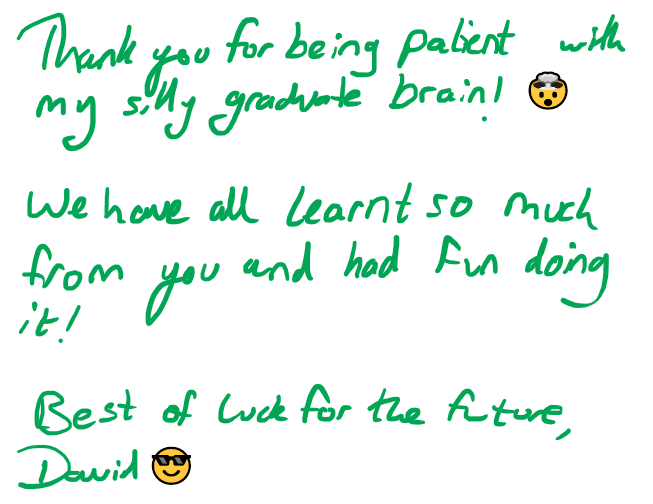 Thank you for being patient with
my silly graduate brain! 🤯
We have all learnt so much
from you and had fun doing
it!
Best of luck for the future,
David 😎